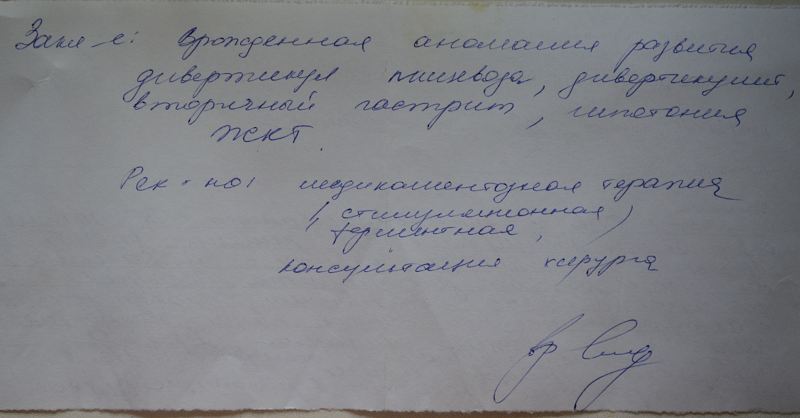 Закл-е: Врожденная аномалия развития
дивертикул пищевода, дивертикулит,
вторичный гастрит, гипотония
ЖКТ.
Рек-но: медикаментозная терапия
(стимуляционная,
ферментная, )
консультация хирурга
вр